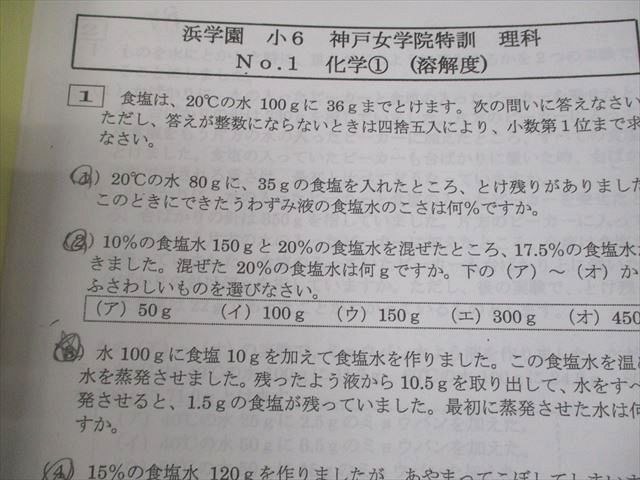 浜学園 小6 神戸女学院特訓 理科
No.1 化学① (溶解度)
1 食塩は、20℃の水 100gに 36gまでとけます。次の問いに答えなさい
ただし、答えが整数にならないときは四捨五入により、小数第1位まで求
なさい。
(1) 20℃の水 80gに、35gの食塩を入れたところ、とけ残りがありました
このときにできたうわずみ液の食塩水のこさは何%ですか。
(2) 10%の食塩水 150gと 20%の食塩水を混ぜたところ、17.5%の食塩水
きました。混ぜた 20%の食塩水は何gですか。下の(ア)～(オ)か
ふさわしいものを選びなさい。
(ア) 50g (イ) 100g (ウ) 150g (エ) 300g (オ) 450
(3) 水 100gに食塩 10gを加えて食塩水を作りました。この食塩水を温
水を蒸発させました。残ったよう液から 10.5gを取り出して、水をすべ
発させると、1.5gの食塩が残っていました。最初に蒸発させた水は何
すか。
(4) 15%の食塩水 120gを作りましたが、あやまってこぼしてしまい